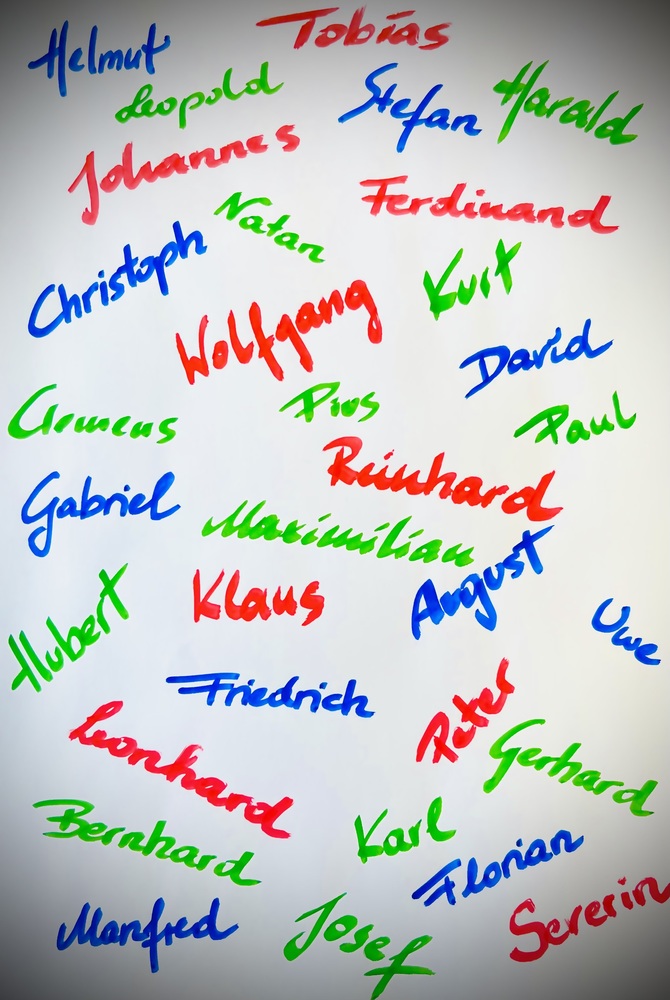 Tobias
Helmut
Leopold
Stefan
Harald
Johannes
Ferdinand
Natan
Christoph
Kurt
Wolfgang
David
Clemens
Pius
Paul
Reinhard
Gabriel
Maximilian
August
Klaus
Hubert
Uwe
Friedrich
Peter
Leonhard
Gerhard
Bernhard
Karl
Florian
Manfred
Josef
Severin